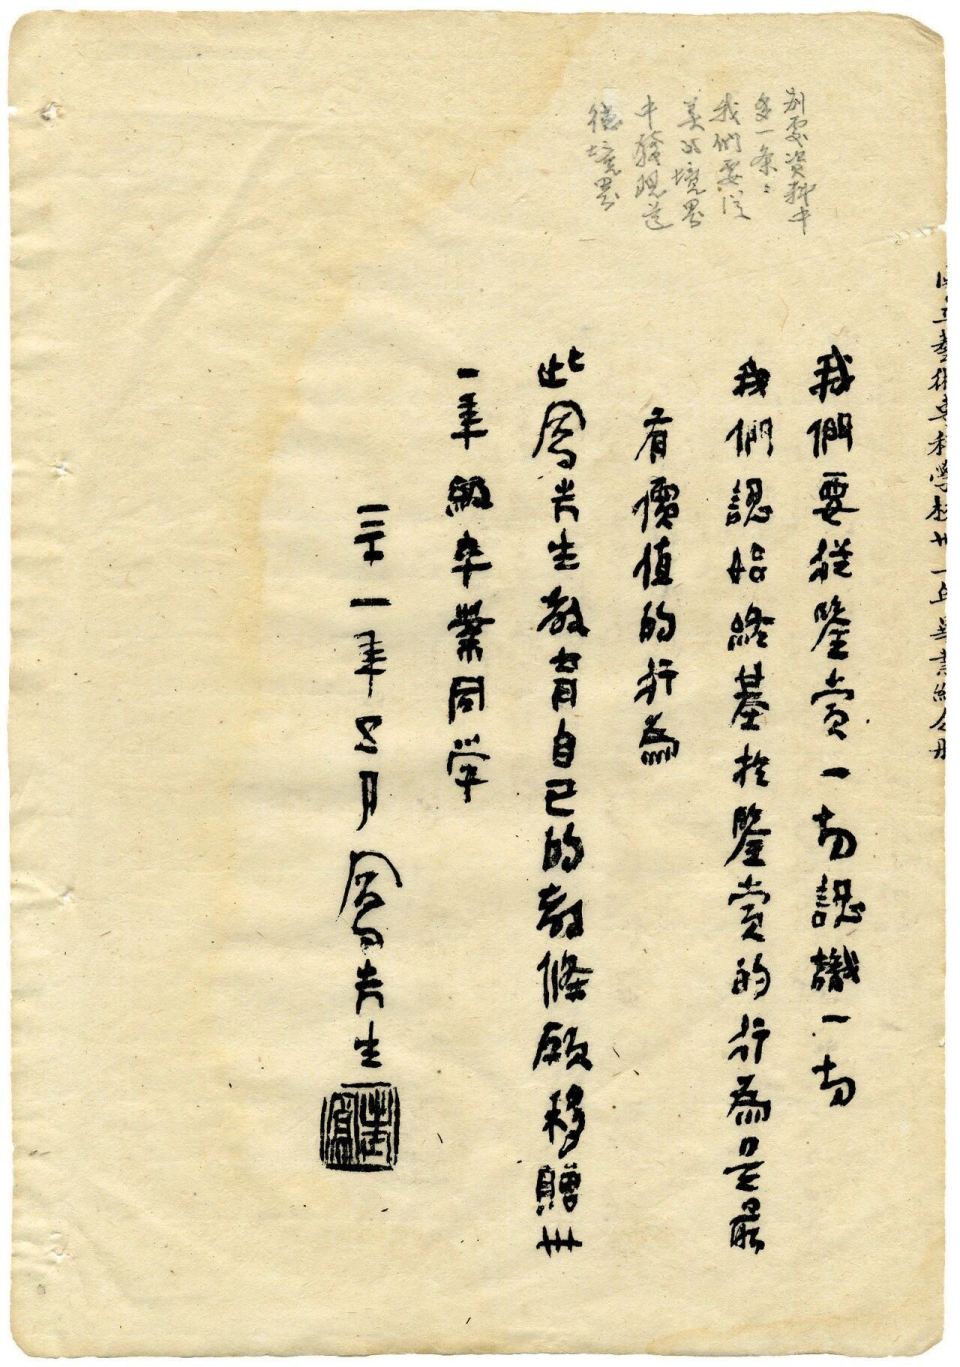 别處資料中
多一条：
我們要從
美的境界
中發現道
德境界
国立藝術專科學校卅一年畢業紀念册
我們要從鑒賞一切認識一切
我們認始終基於鑒賞的行為是最
有價值的行為
此鳳先生教育自己的教條願移贈卅
一年級卒業同学
三十一年五月鳳先生